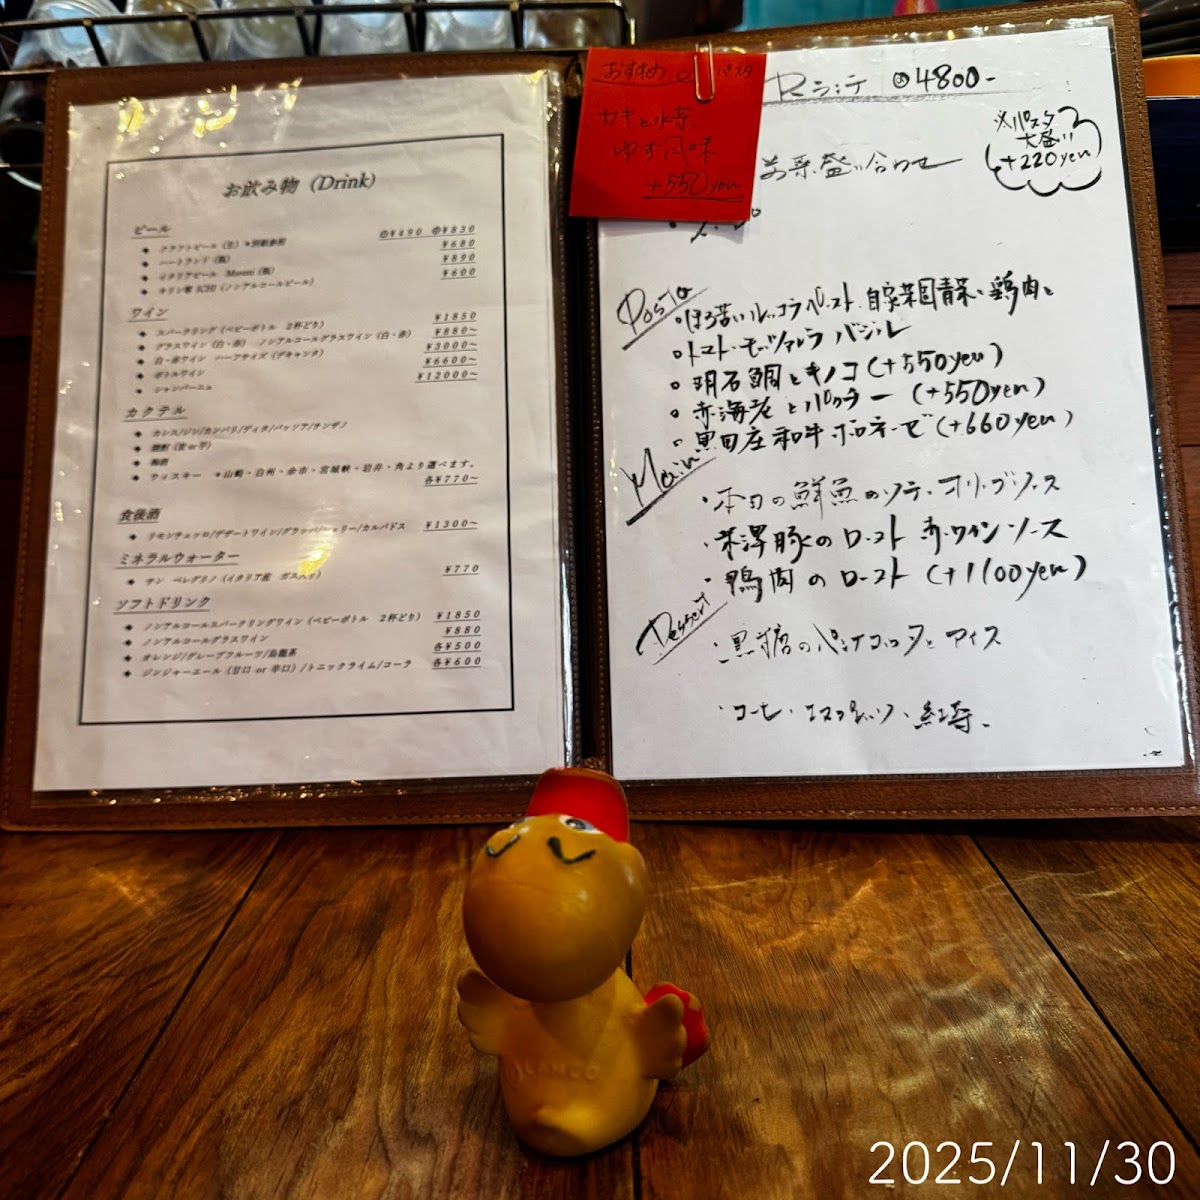 お飲み物 (Drink)
ビール
◆ クラフトビール (生) *別紙参照 ㊥¥490 ㊥¥830
◆ ハートランド (瓶) ¥680
◆ イタリアビール Moretti (瓶) ¥890
◆ キリン零 ICHI (ノンアルコールビール) ¥600
ワイン
◆ スパークリング (ベビーボトル 2杯どり) ¥1850
◆ グラスワイン (白・赤) ノンアルコールグラスワイン (白・赤) ¥880~
◆ 白・赤ワイン ハーフサイズ (デキャンタ) ¥3000~
◆ ボトルワイン ¥6600~
◆ シャンパーニュ ¥12000~
カクテル
◆ カシス/ジン/カンパリ/ディタ/パッソア/チンザノ
◆ 焼酎 (麦 or 芋)
◆ 梅酒
◆ ウィスキー *山崎・白州・余市・宮城峡・岩井・角より選べます。
各¥770~
食後酒
◆ リモンチェッロ/デザートワイン/グラッパ/シェリー/カルバドス ¥1300~
ミネラルウォーター
◆ サン ペレグリノ (イタリア産 ガス入り) ¥770
ソフトドリンク
◆ ノンアルコールスパークリングワイン (ベビーボトル 2杯どり) ¥1850
◆ ノンアルコールグラスワイン ¥880
◆ オレンジ/グレープフルーツ/烏龍茶 各¥500
◆ ジンジャーエール (甘口 or 辛口) /トニックライム/コーラ 各¥600
おすすめ パスタ
カキと水菜、
ゆず風味
+550yen
Rランチ 4800-
※パスタ
大盛り
+220yen
前菜盛り合わせ
Pasta
・ほろ苦いルッコラペースト、自家菜園青菜と鶏肉と
・トマト・モッツァレラ バジル
・明石鯛とキノコ (+550yen)
・赤海老とパクチー (+550yen)
・黒田庄和牛ボロネーゼ (+660yen)
Main
・本日の鮮魚のソテー・オリーブソース
・米澤豚のロースト 赤ワインソース
・鴨肉のロースト (+1100yen)
Dessert
・黒糖のパンナコッタとアイス
・コーヒー・エスプレッソ・紅茶、
2025/11/30